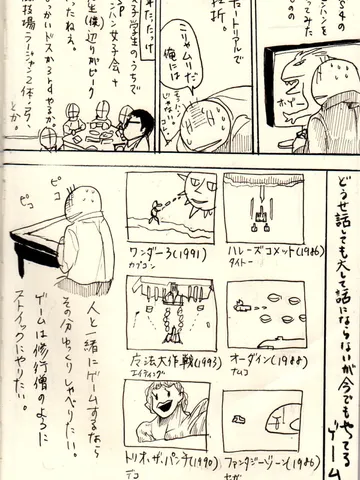 S4の
ンハンを
ってみた
のの
ホゾー
たートリアルで
挫折
こりゃムリだ
俺には
モンハンじゃない
コレ
年たったけ
学生のうちで
ンハン女子会+
生(僕)辺りがピーク
ったねぇ。
っかいドスから3rdやるか
技場ラージャン2体っう、
とか。
どうせ話しても大して話にならないが今でもやってる
ゲーム
ハレーズコメット(1986)
タイトー
ワンダー3(1991)
カプコン
オーダイン(1988)
ナムコ
魔法大作戦(1993)
エイティング
ファンタジーゾーン(1986)
セガ
トリオ・ザ・パンチ(1990)
デコ
ピコ
ピコ
人と緒にゲームするなら
その分ゆっくりしゃべりたい。
ゲームは修行僧のように
ストイックにやりたい。